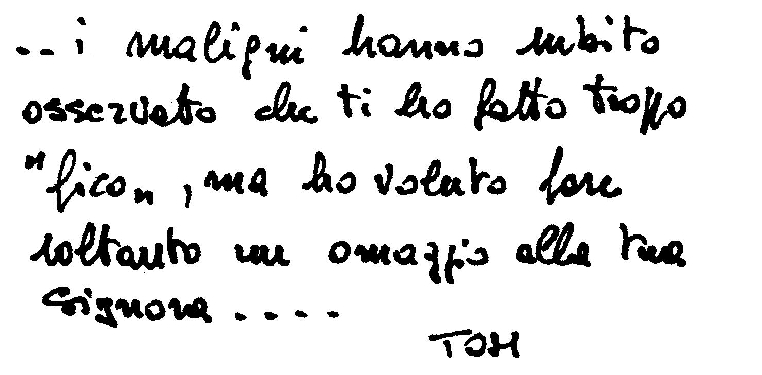 ... i maligni hanno subito
osservato che ti ho fatto troppo
"fico", ma ho voluto fare
soltanto un omaggio alla tua
signora ....
TOM